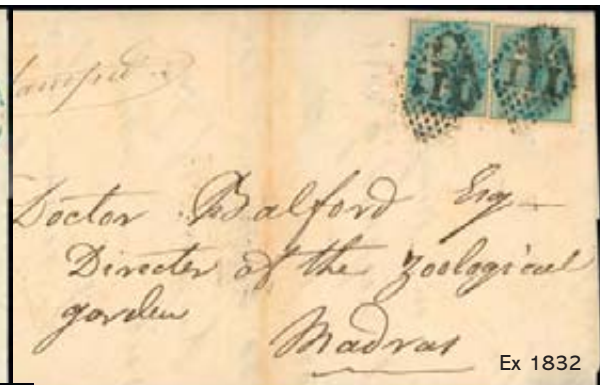 Stamped
Doctor Balford Esq
Director of the Zoological
garden
Madras
Ex 1832